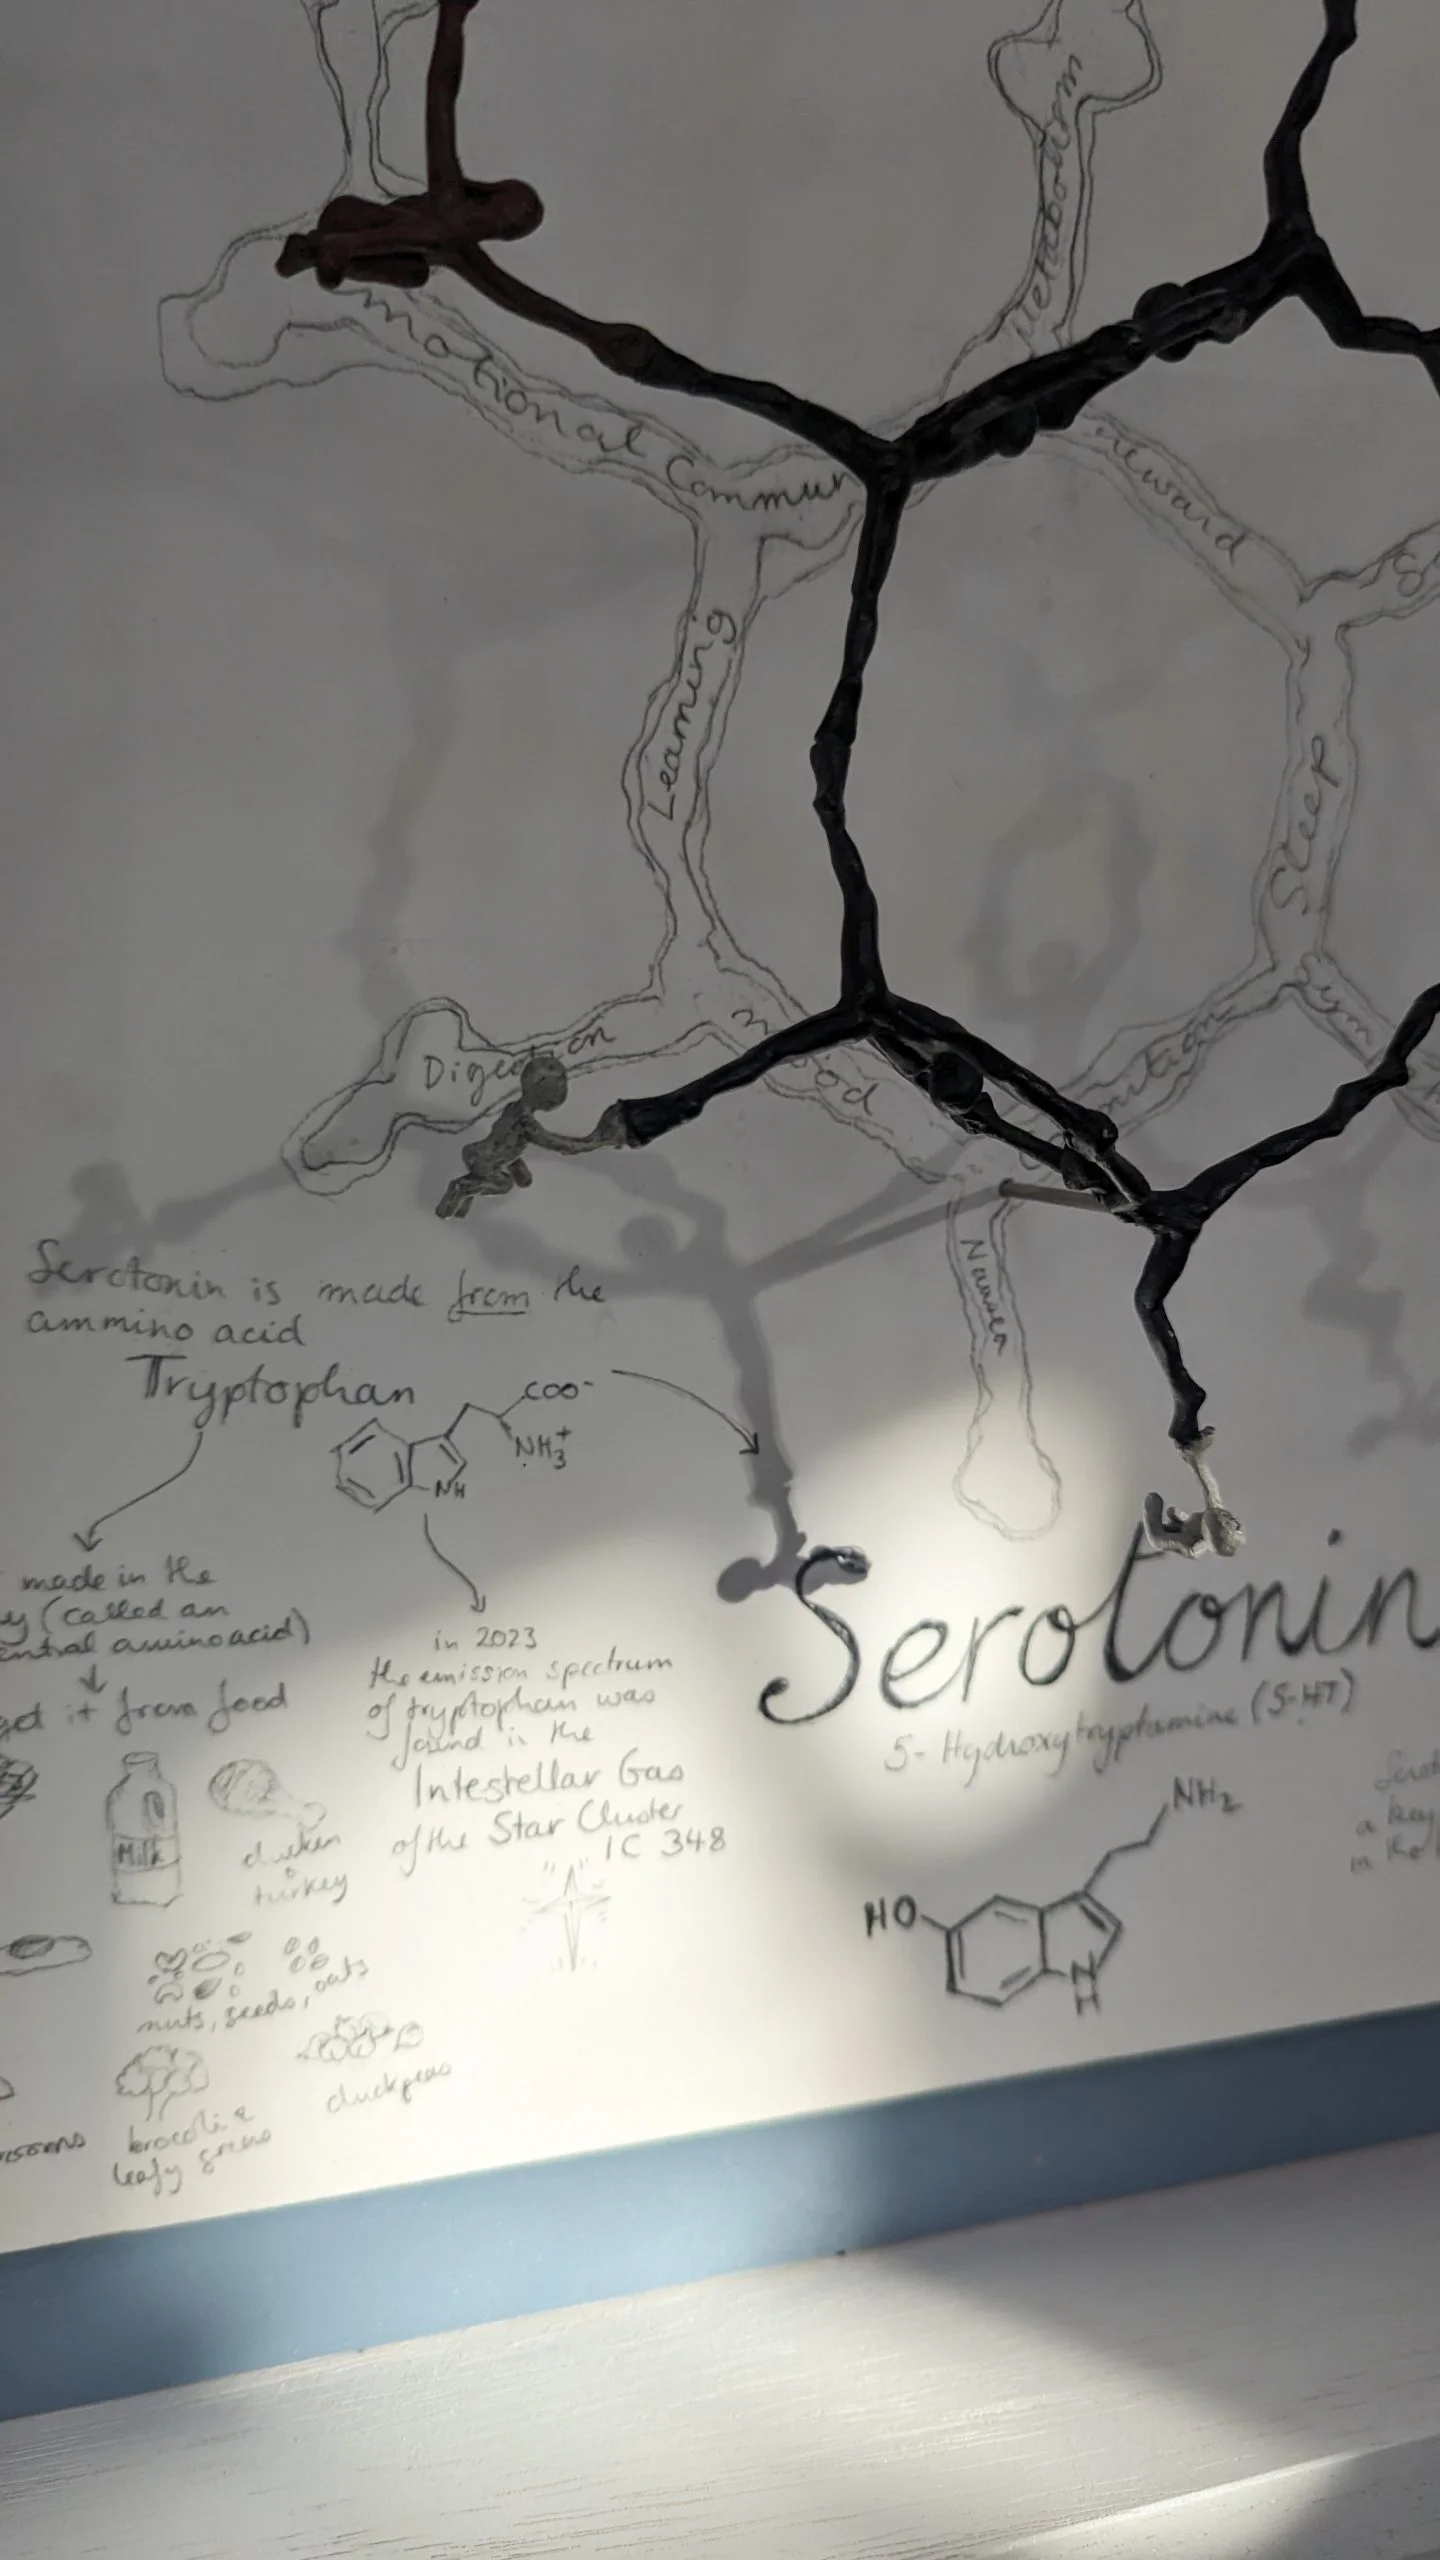 Metabolism
motional Commun
reward
Learning
Sleep
Digestion
Mood
Nausea
Serotonin is made from the
ammino acid
Tryptophan
COO-
NH3+
NH
made in the
(called an
ential aminoacid)
get it from food
Milk
chicken
turkey
nuts, seeds, oats
brocoli &
leafy greens
chickpeas
in 2023
the emission spectrum
of tryptophan was
found in the
Intestellar Gas
of the Star Cluster
IC 348
Serotonin
5-Hydroxytryptamine (5-HT)
NH2
HO
N
H
a key